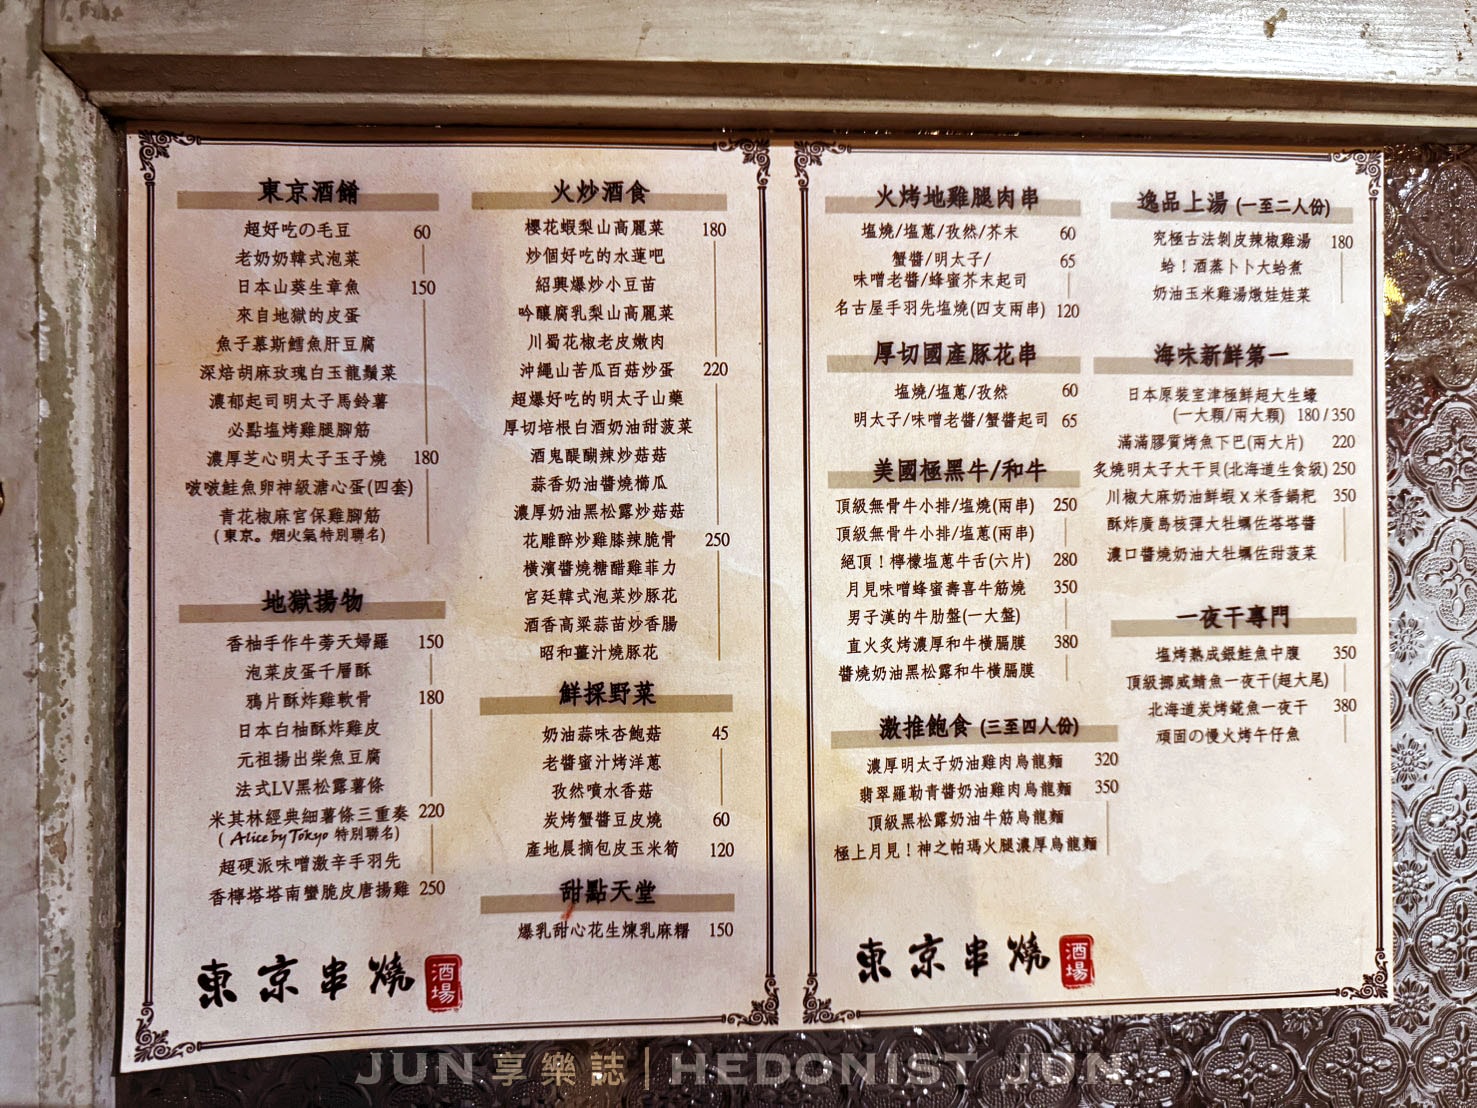 東京酒餚
超好吃の毛豆 60
老奶奶韓式泡菜
日本山葵生章魚 150
來自地獄的皮蛋
魚子慕斯鱈魚肝豆腐
深焙胡麻玫瑰白玉龍鬚菜
濃郁起司明太子馬鈴薯
必點塩烤雞腿腳筋
濃厚芝心明太子玉子燒 180
啵啵鮭魚卵神級溏心蛋(四套)
青花椒麻宮保雞腳筋
(東京。烟火氣特別聯名)
地獄揚物
香柚手作牛蒡天婦羅 150
泡菜皮蛋千層酥
鴉片酥炸雞軟骨 180
日本白柚酥炸雞皮
元祖揚出柴魚豆腐
法式LV黑松露薯條
米其林經典細薯條三重奏 220
(Alice by Tokyo 特別聯名)
超硬派味噌激辛手羽先
香檸塔塔南蠻脆皮唐揚雞 250
東京串燒 酒場
火炒酒食
櫻花蝦梨山高麗菜 180
炒個好吃的水蓮吧
紹興爆炒小豆苗
吟釀腐乳梨山高麗菜
川蜀花椒老皮嫩肉
沖繩山苦瓜百菇炒蛋 220
超爆好吃的明太子山藥
厚切培根白酒奶油甜菠菜
酒鬼醍醐辣炒菇菇
蒜香奶油醬燒櫛瓜
濃厚奶油黑松露炒菇菇
花雕醉炒雞膝辣脆骨 250
橫濱醬燒糖醋雞菲力
宮廷韓式泡菜炒豚花
酒香高粱蒜苗炒香腸
昭和薑汁燒豚花
鮮採野菜
奶油蒜味杏鮑菇 45
老醬蜜汁烤洋蔥
孜然噴水香菇
炭烤蟹醬豆皮燒 60
產地晨摘包皮玉米筍 120
甜點天堂
爆乳甜心花生煉乳麻糬 150
火烤地雞腿肉串
塩燒/塩蔥/孜然/芥末 60
蟹醬/明太子/ 65
味噌老醬/蜂蜜芥末起司
名古屋手羽先塩燒(四支兩串) 120
厚切國產豚花串
塩燒/塩蔥/孜然 60
明太子/味噌老醬/蟹醬起司 65
美國極黑牛/和牛
頂級無骨牛小排/塩燒(兩串) 250
頂級無骨牛小排/塩蔥(兩串)
絕頂！檸檬塩蔥牛舌(六片) 280
月見味噌蜂蜜壽喜牛筋燒 350
男子漢的牛肋盤(一大盤)
直火炙烤濃厚和牛橫膈膜 380
醬燒奶油黑松露和牛橫膈膜
激推飽食 (三至四人份)
濃厚明太子奶油雞肉烏龍麵 320
翡翠羅勒青醬奶油雞肉烏龍麵 350
頂級黑松露奶油牛筋烏龍麵
極上月見！神之帕瑪火腿濃厚烏龍麵
東京串燒 酒場
逸品上湯 (一至二人份)
究極古法剝皮辣椒雞湯 180
蛤！酒蒸卜卜大蛤煮
奶油玉米雞湯燉娃娃菜
海味新鮮第一
日本原裝室津極鮮超大生蠔
(一大顆/兩大顆) 180 / 350
滿滿膠質烤魚下巴(兩大片) 220
炙燒明太子大干貝(北海道生食級) 250
川椒大麻奶油鮮蝦 X 米香鍋粑 350
酥炸廣島核彈大牡蠣佐塔塔醬
濃口醬燒奶油大牡蠣佐甜菠菜
一夜干專門
塩烤熟成銀鮭魚中腹 350
頂級挪威鯖魚一夜干(超大尾)
北海道炭烤鯱魚一夜干 380
頑固の慢火烤午仔魚
JUN享樂誌 | HEDONIST JUN